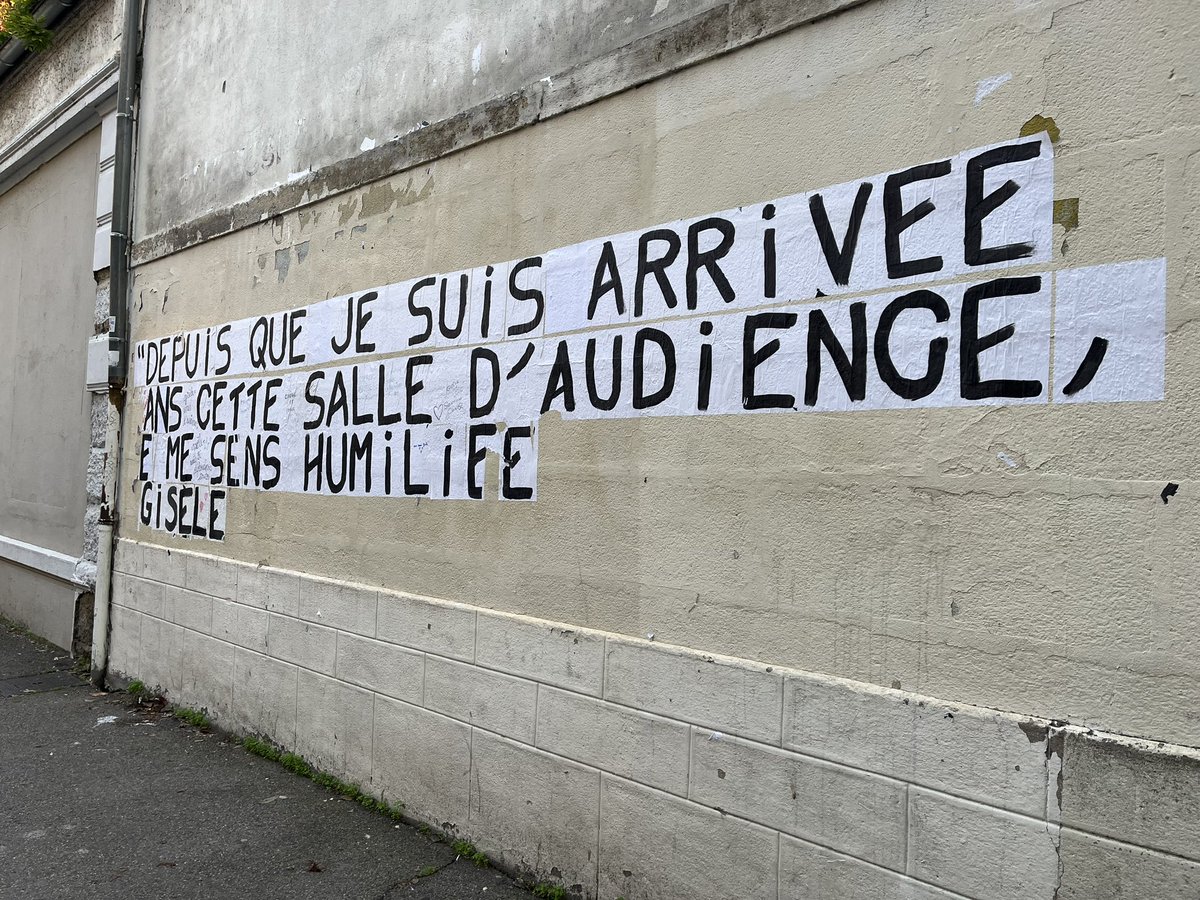 "DEPUIS QUE JE SUIS ARRIVEE
ANS CETTE SALLE D'AUDIENCE,
E ME SENS HUMILIEE
GISÈLE